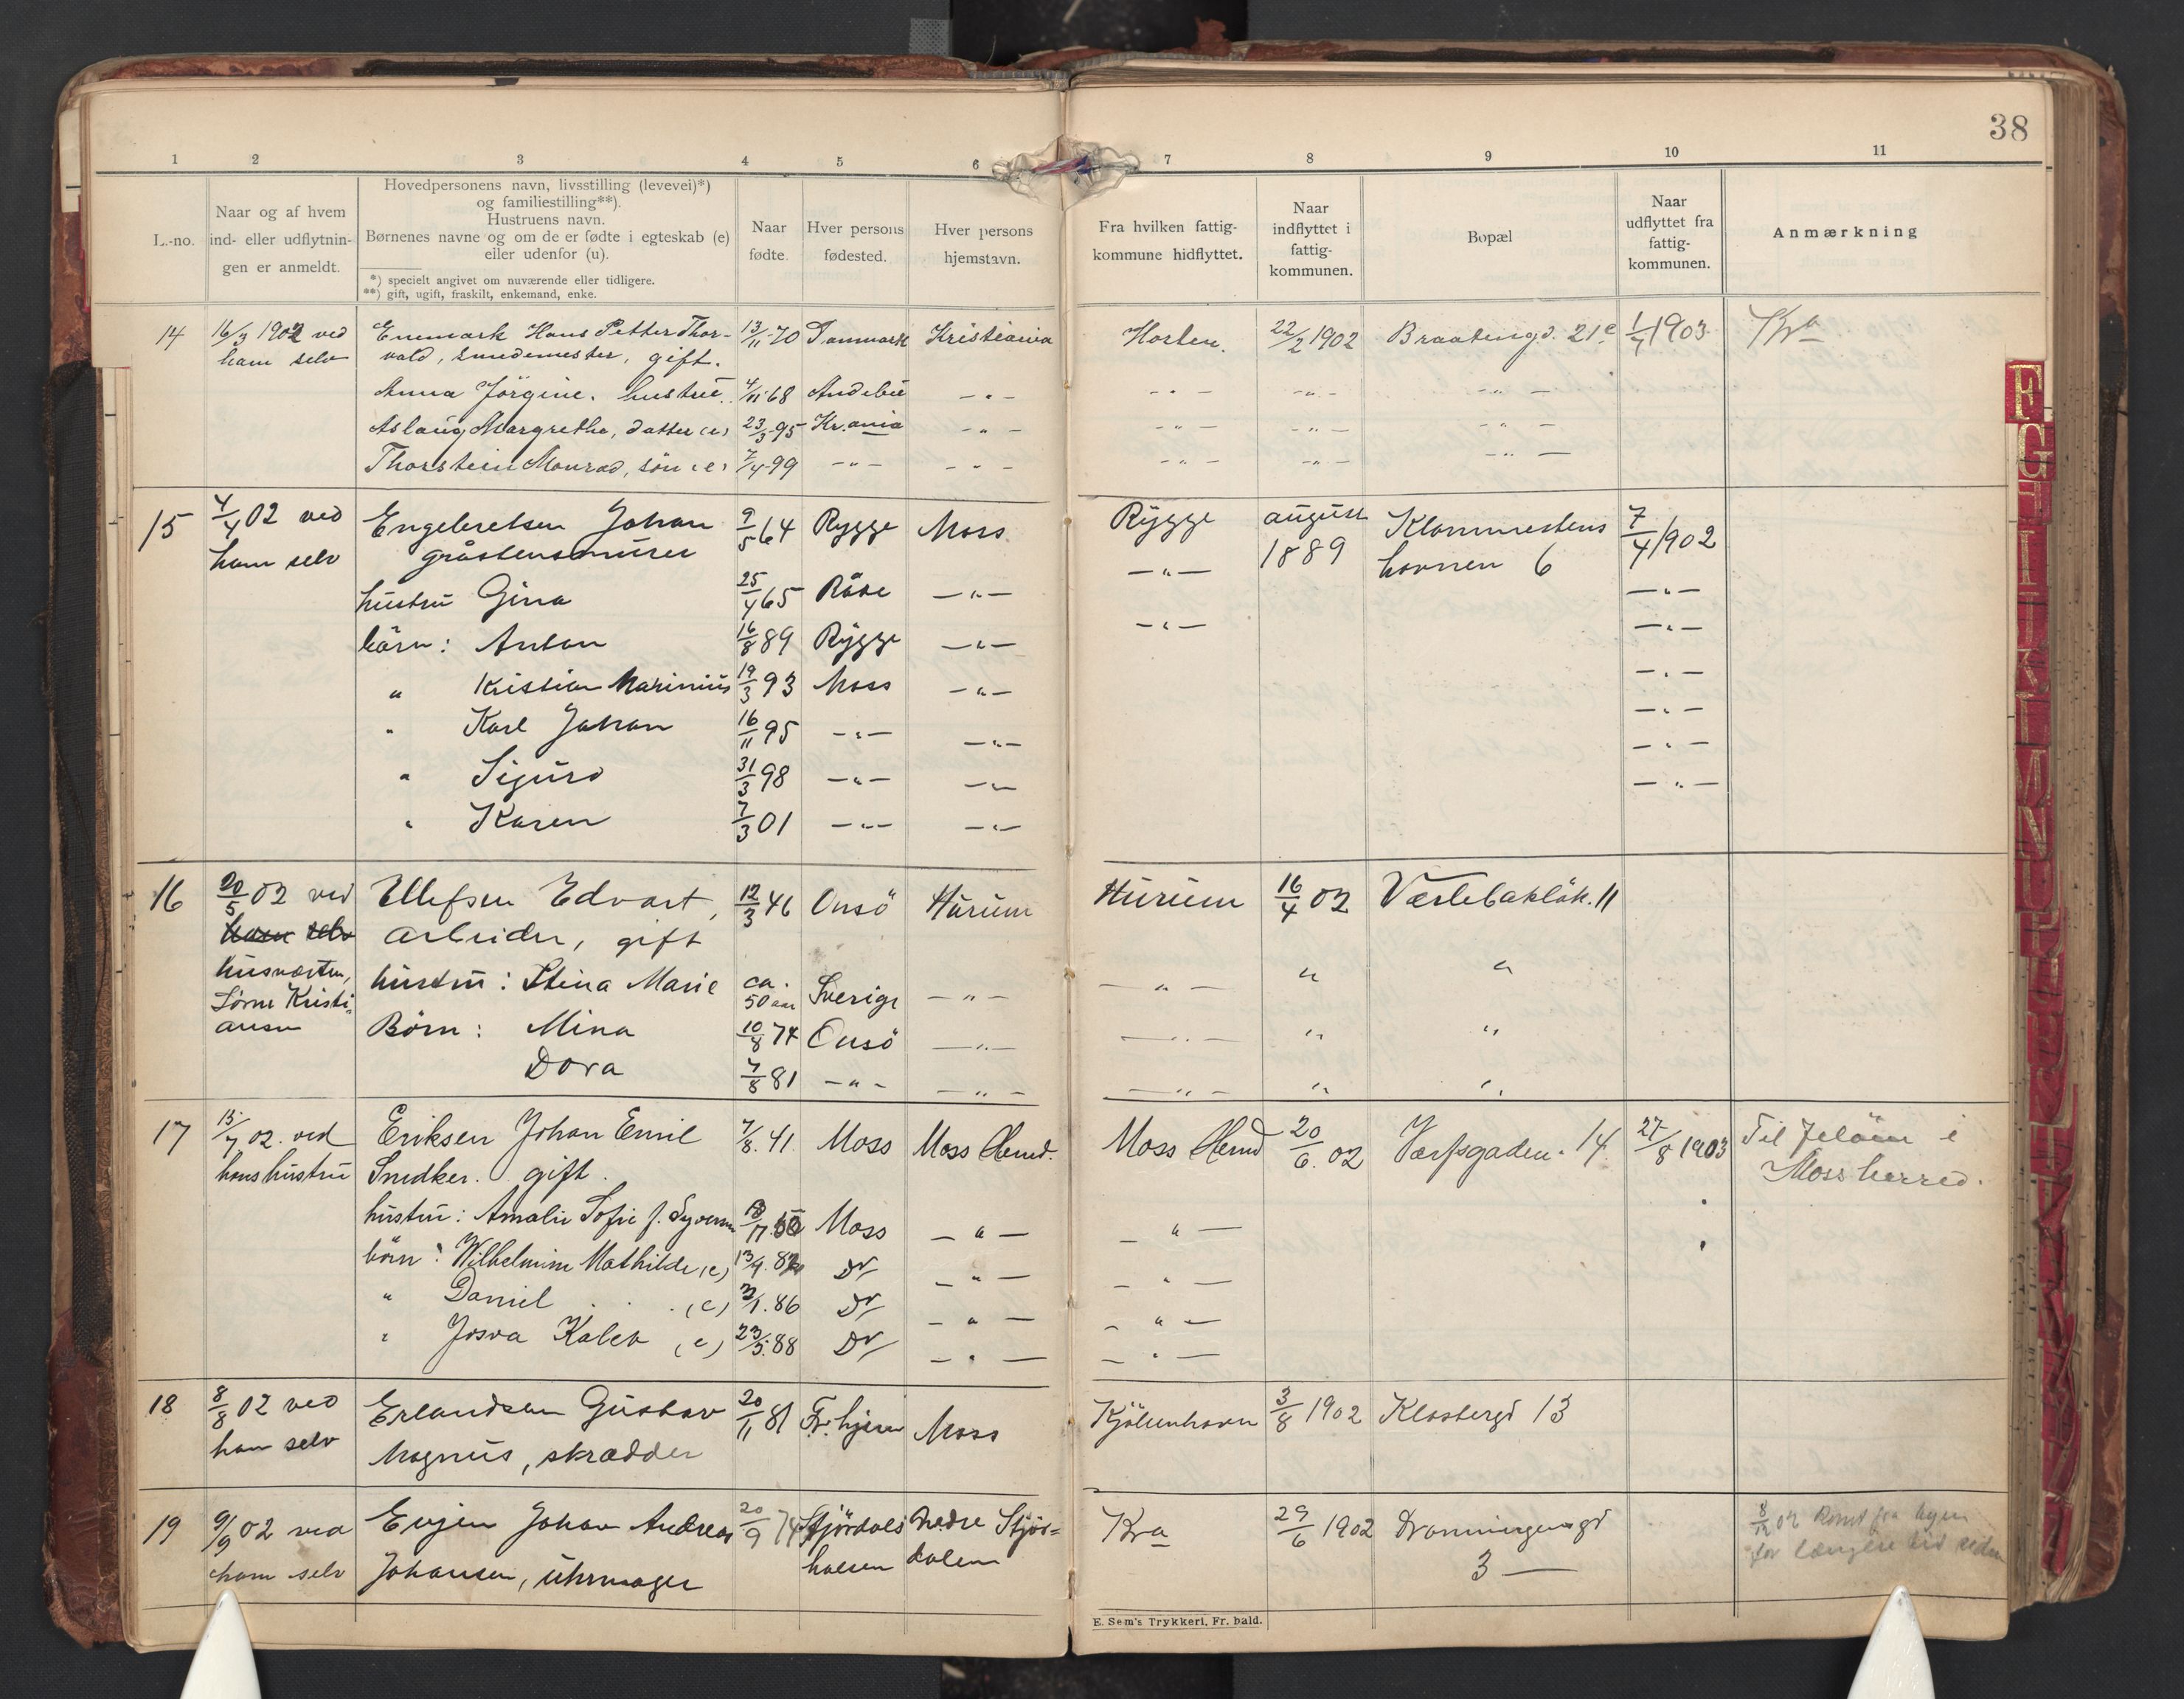 38
1 2 3 4 5 6 7 8 9 10 11
L.-no.
Naar og af hvem
ind- eller udflytnin-
gen er anmeldt.
Hovedpersonens navn, livsstilling (levevei)*)
og familiestilling**).
Hustruens navn.
Børnenes navne og om de er fødte i egteskab (e)
eller udenfor (u).
*) specielt angivet om nuværende eller tidligere.
**) gift, ugift, fraskilt, enkemand, enke.
Naar
fødte.
Hver persons
fødested.
Hver persons
hjemstavn.
Fra hvilken fattig-
kommune hidflyttet.
Naar
indflyttet i
fattig-
kommunen.
Bopæl
Naar
udflyttet fra
fattig-
kommunen.
Anmærkning
14 16/3 1902 ved Enemark Hans Petter Thor- 13/11-70 Danmark Kristiania Horten. 22/2 1902 Braatengd. 21c 1/7 1903 Kra
ham selv vald, smedemester, gift.
Anna Jörgine. hustru. 4/11-68 Andebu -"- -"- -"- -"-
Aslaug Margrethe, datter (e) 23/3-95 Kr.ania -"- -"- -"- -"-
Thorstein Monrad, sön (e) 7/4-99 -"- -"- -"- -"- -"-
15 4/4 02 ved Engebretsen Johan 9/5 64 Rygge Moss Rygge august Klommestens 7/4 1902
ham selv gråstensmurer -"- 1889 hovnen 6
hustru Gina 25/4 65 Råde -"- -"- -"-
börn: Anton 16/8 89 Rygge -"- -"-
" Kristian Marinius 19/3 93 Moss -"- -"-
" Karl Johan 16/11 95 -"- -"- -"-
" Sigurd 31/3 98 -"- -"- -"-
" Karen 7/3 01 -"- -"- -"-
16 20/5 02 ved Ellefsen Edvart, 12/3 46 Onsö Hurum Hurum 16/4 02 Værlebakløk. 11
ham selv arbeider, gift
husværten, hustru: Stina Marie ca. 50 aar Sverige -"- -"- " "
Sörne Kristi-
ansen Börn: Mina 10/8 74 Onsö -"- -"- " "
Dora 7/8 81 -"- -"- -"- " "
17 15/7 02. ved Eriksen Johan Emil 7/8. 41. Moss Moss Herred. Moss Herred 20/6. 02 Værfsgaden. 14. 27/8 1903 Til Jelöen i
hans hustru Snedker. gift. Moss herred.
hustru: Amalie Sofie f. Syversen Moss -"- -"-
börn: Wilhelmine Mathilde (e) 13/9. Do -"- -"-
" Daniel (e) 3/1. 86 Do -"- -"-
" Josva Kaleb (e) 23/5. 88 Do -"- -"-
18 8/8 02 ved Erlandsen Gustav 20/11 81 Fr.hjem Moss Kjöbenhavn 3/8 1902 Klostergd 13
ham selv Magnus, skrædder
19 9/9 02 ved Evjen Johan Andreas 20/9 74 Stjördals Nedre Stjör- Kra 29/6 1902 Dronningensgd
ham selv Johansen, uhrmager halsen dalen 3 —
8/12 02 Romt fra byen
for længere tid siden
E. Sem's Trykkeri, Fr. hald.
F
G
H
I
J
K
L
M
N